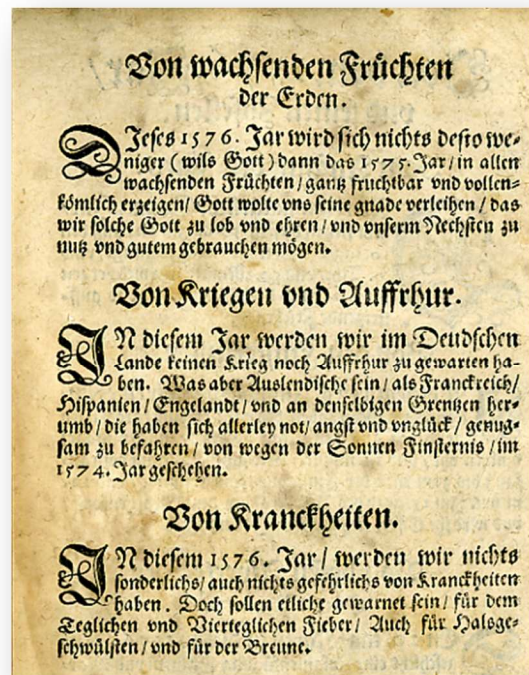 Von wachsenden Früchten
der Erden.
DJeses 1576. Jar wird sich nichts desto we-
niger (wils Gott) dann das 1575. Jar/ in allen
wachsenden Früchten/ gantz fruchtbar vnd vollen-
kömlich erzeigen/ Gott wolte vns seine gnade verleihen/ das
wir solche Gott zu lob vnd ehren/ vnd vnserm Nechsten zu
nutz vnd gutem gebrauchen mögen.
Von Kriegen vnd Auffrhur.
IN diesem Jar werden wir im Deudschen
Lande keinen Krieg noch Auffrhur zu gewarten ha-
ben. Was aber Auslendische sein/ als Franckreich/
Hispanien/ Engelandt/ vnd an denselbigen Grentzen her-
umb/ die haben sich allerley not/ angst vnd vnglück/ genug-
sam zu befahren/ von wegen der Sonnen Finsternis/ im
1574. Jar geschehen.
Von Kranckheiten.
IN diesem 1576. Jar/ werden wir nichts
sonderlichs/ auch nichts gefehrlichs von Kranckheiten
haben. Doch sollen etliche gewarnet sein/ für dem
Teglichen vnd Vierteglichen Fieber/ Auch für Halsge-
schwülsten/ vnd für der Breune.